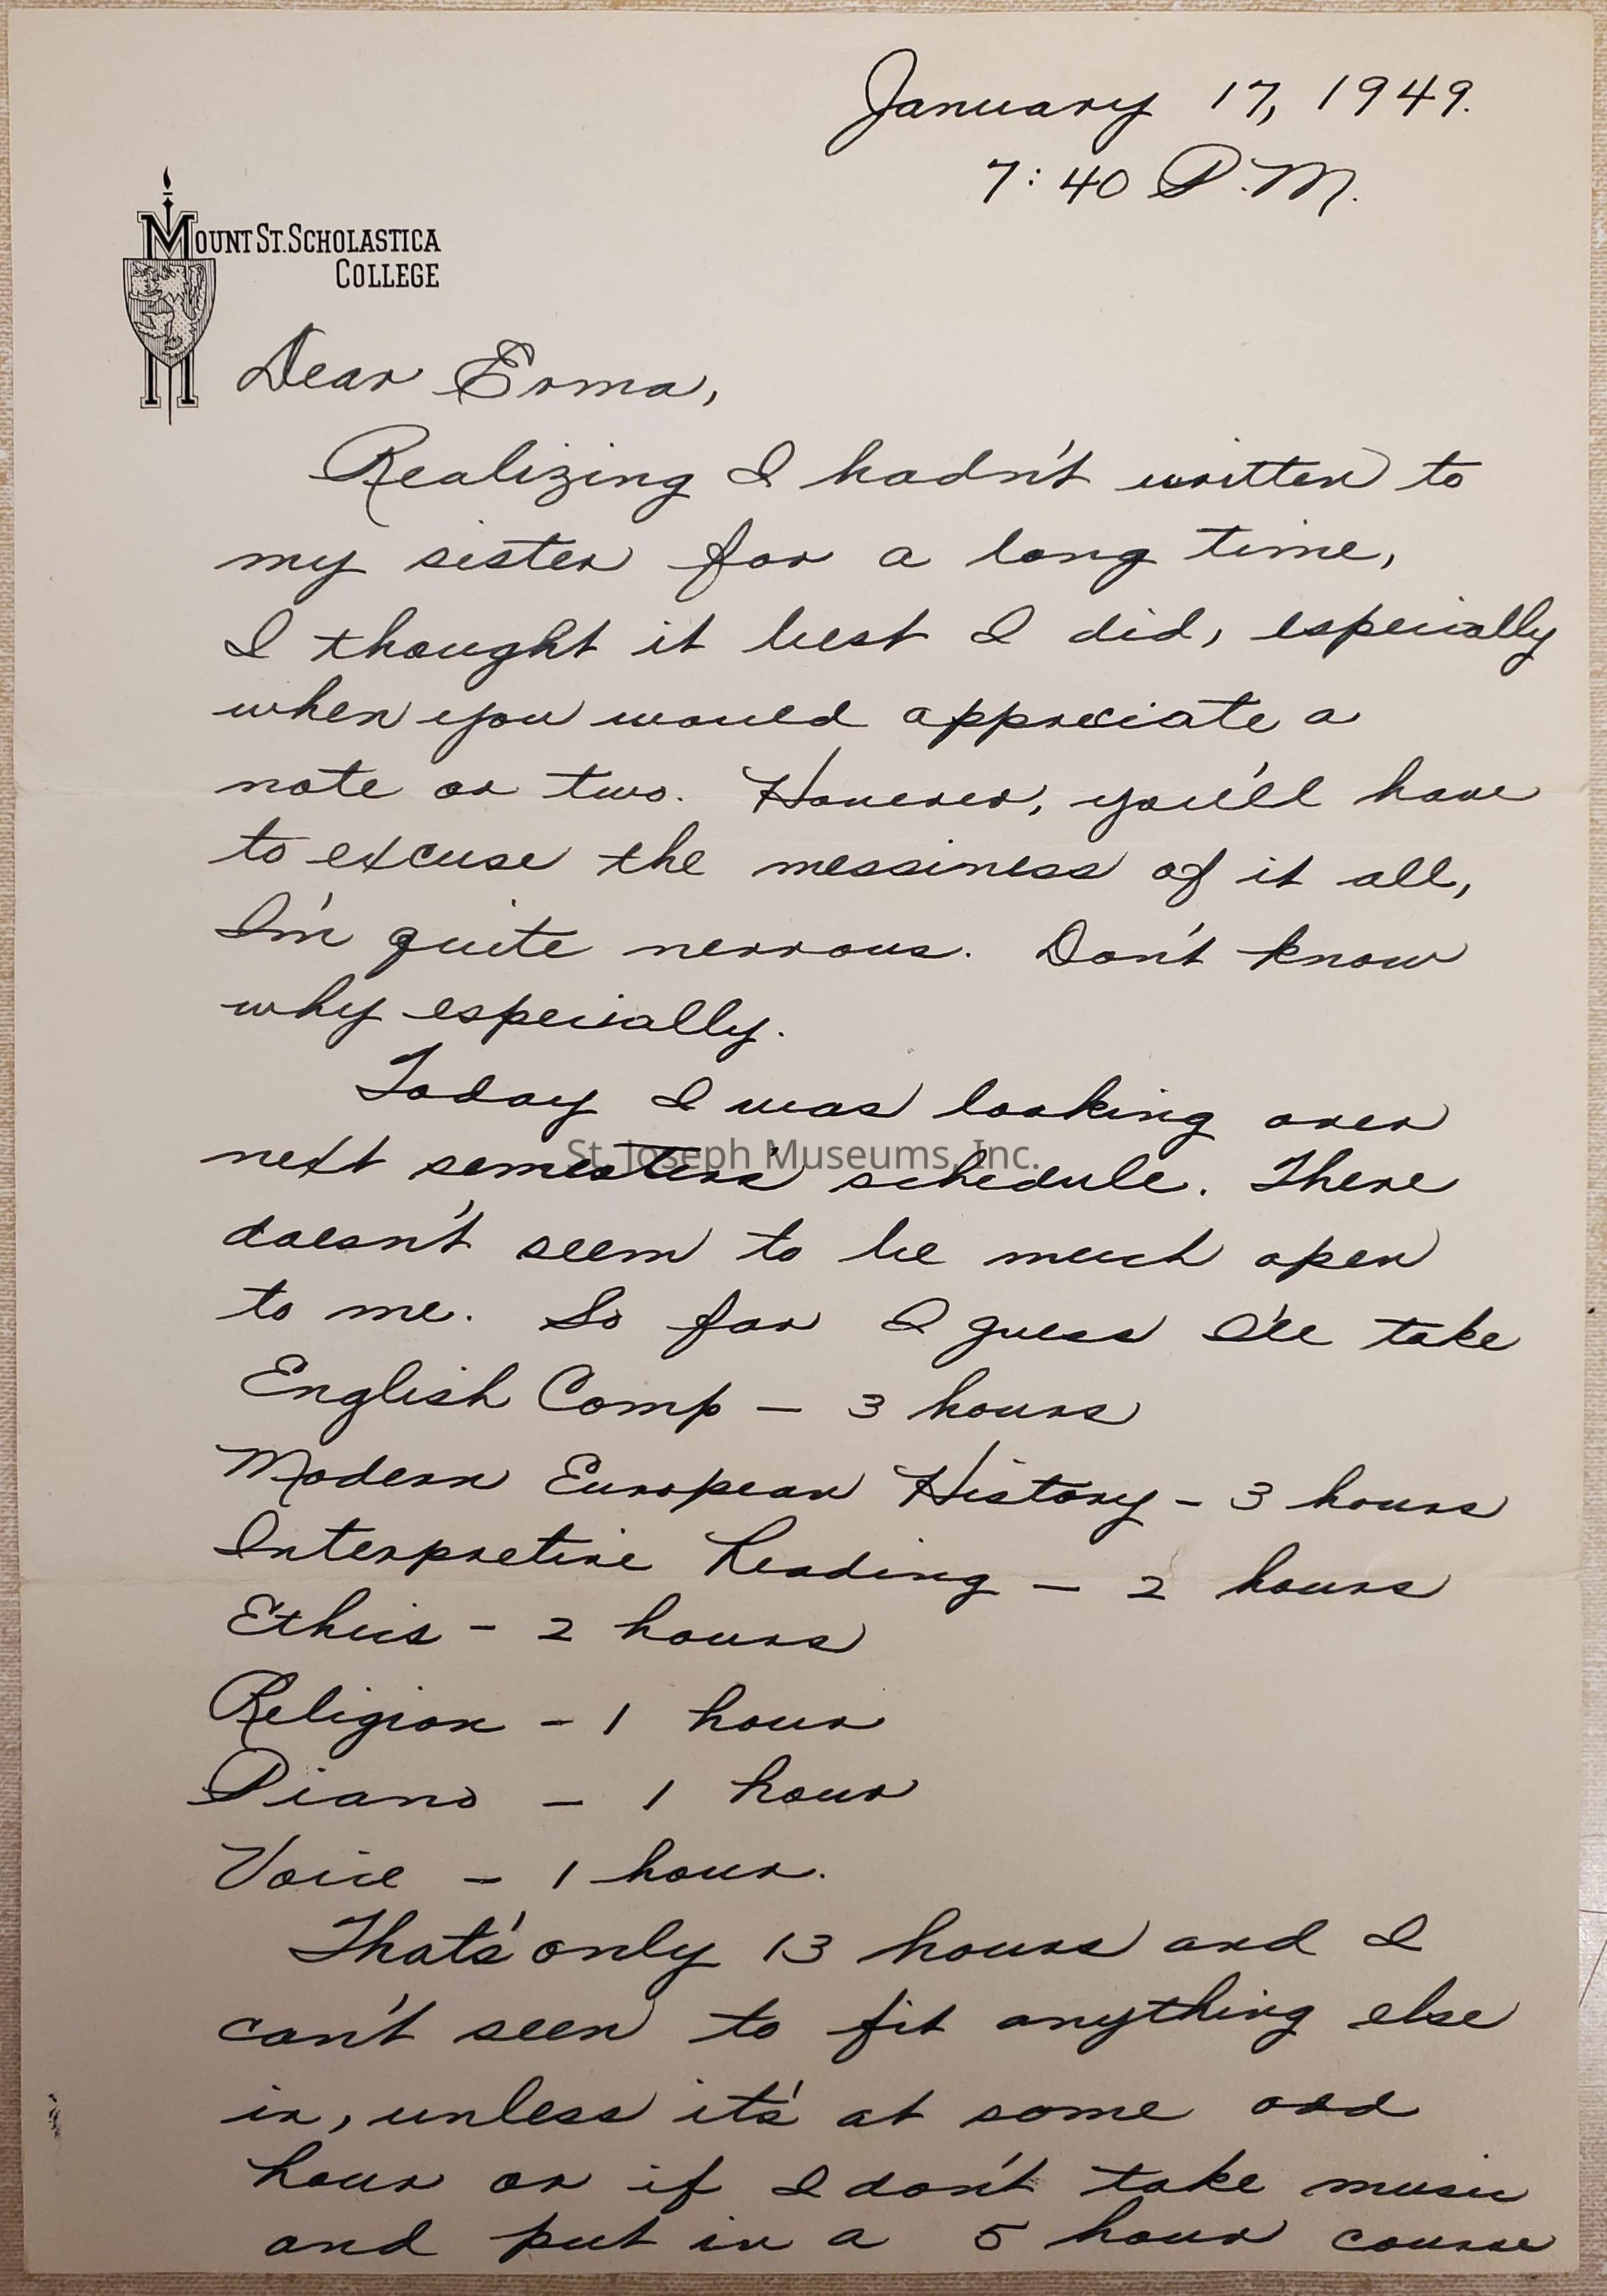 January 17, 1949.
7:40 P.M.
MOUNT ST. SCHOLASTICA
COLLEGE
Dear Erma,
Realizing I hadn't written to
my sister for a long time,
I thought it best I did, especially
when you would appreciate a
note or two. However, you'll have
to excuse the messiness of it all,
I'm quite nervous. Don't know
why especially.
Today I was looking over
St. Joseph Museums, Inc.
next semester's schedule. There
doesn't seem to be much open
to me. So far I guess I'll take
English Comp - 3 hours
Modern European History - 3 hours
Interpretive Reading - 2 hours
Ethics - 2 hours
Religion - 1 hour
Piano - 1 hour
Voice - 1 hour.
That's only 13 hours and I
can't seen to fit anything else
in, unless it's at some odd
hour or if I don't take music
and put in a 5 hour course